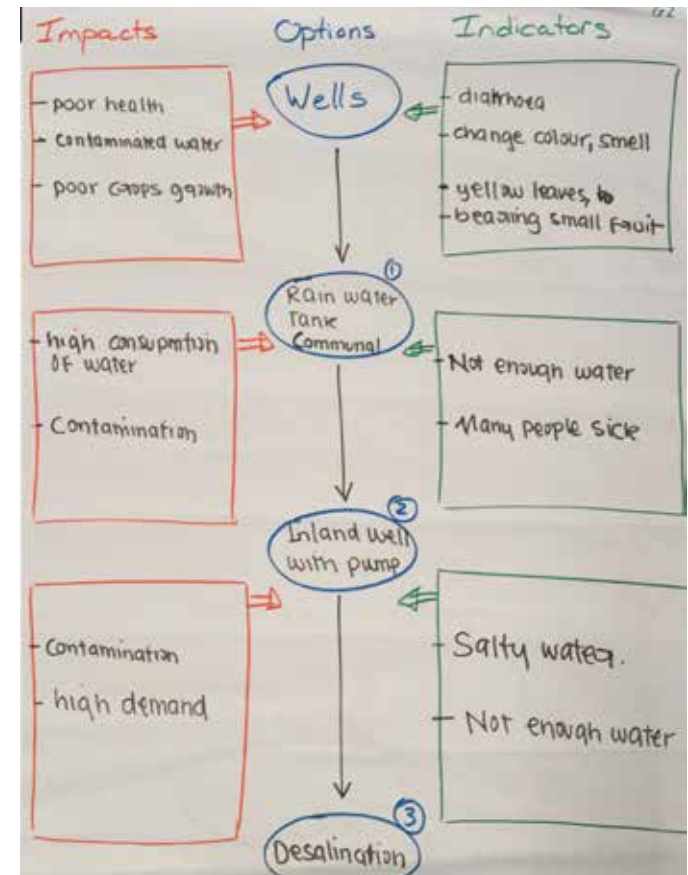 G2
Impacts Options Indicators
Wells
- poor health
- contaminated water
- poor crops growth
- diarrhoea
- change colour, smell
- yellow leaves,
- bearing small fruit
①
Rain water
Tank
Communal
- high consupmtion
of water
- Contamination
- Not enough water
- Many people sick
②
Inland well
with pump
- Contamination
- high demand
- Salty water.
- Not enough water
③
Desalination